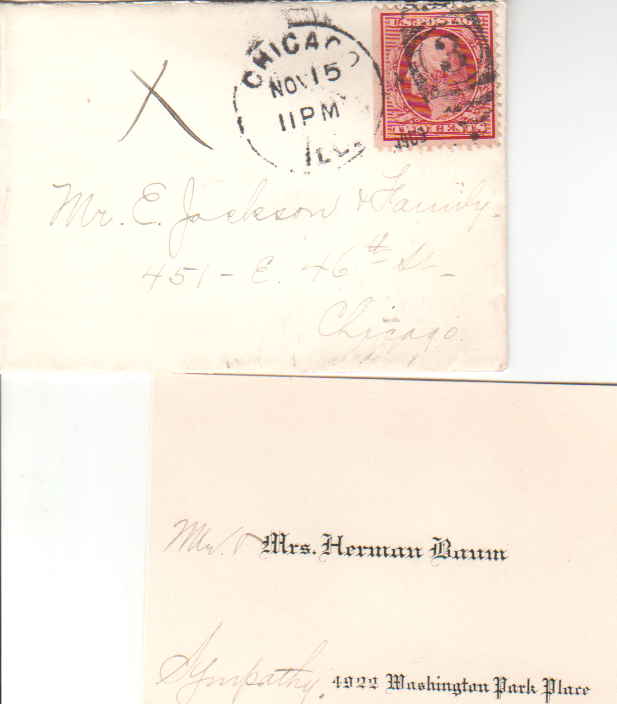 CHICAGO
NOV 15
11 PM
ILL.
U.S. POSTAGE
Mr. E. Jackson & Family.
451 - E. 46th St -
Chicago.
Mr. & Mrs. Herman Baum
Sympathy. 4922 Washington Park Place